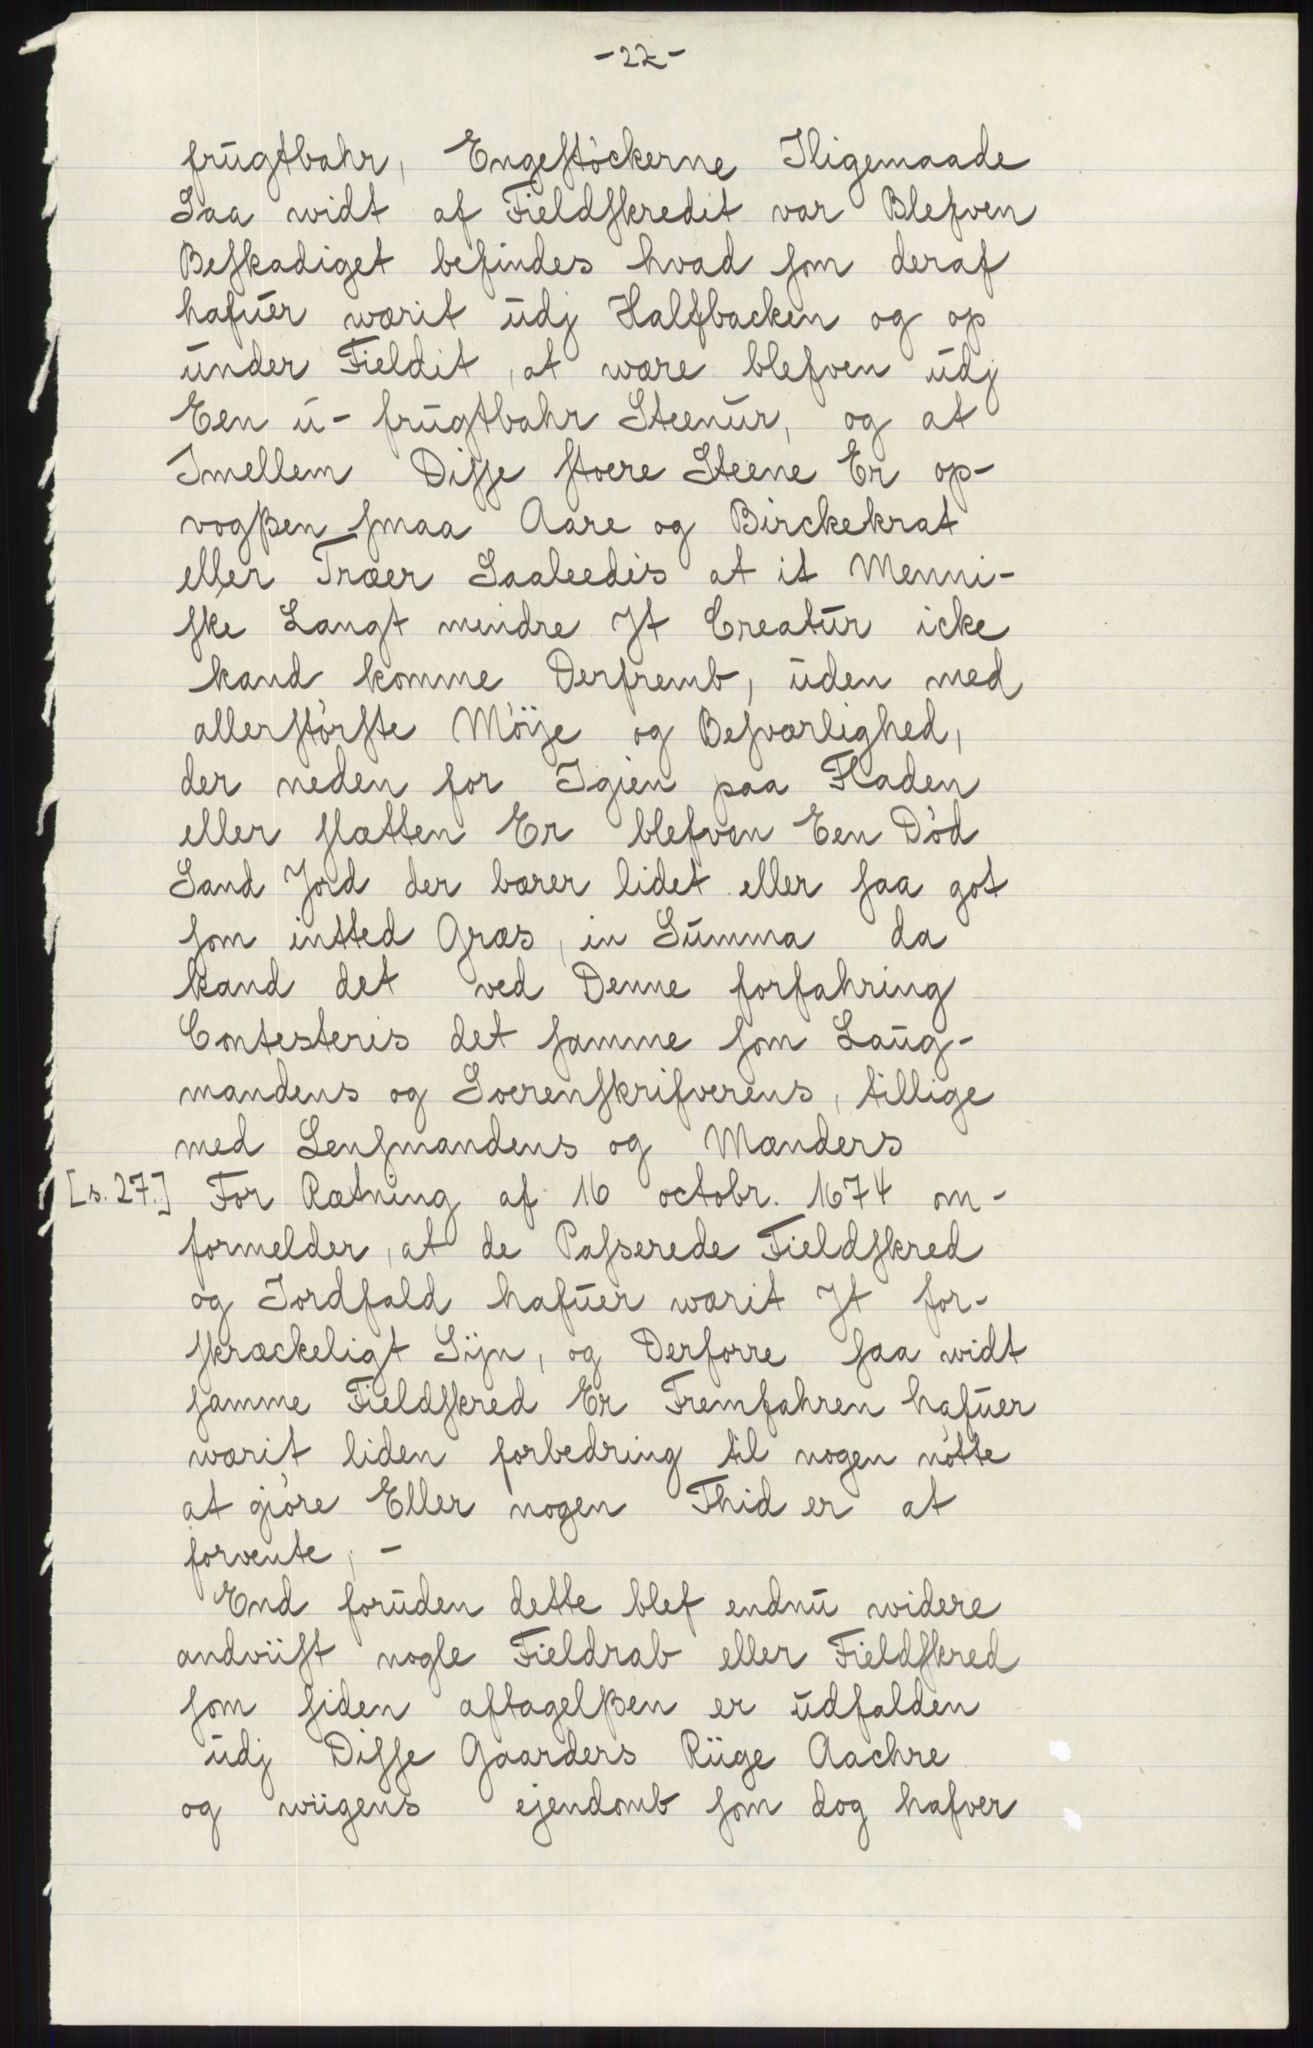 -22-
frugtbahr, Engestöckerne Iligemaade
Saa widt af Fieldskredit var Blefven
Beskadiget befindes hvad som deraf
hafuer wærit udj Halfbacken og op
under Fieldit, at wære blefven udj
Een u- frugtbahr Steenur, og at
Imellem Disse stoere Steene Er op-
vogßen smaa Aare og Birckekrat
eller Træer Saaleedis at it Menni-
ske Langt mindre It Creatur icke
kand komme Derfremb, uden med
allerstörste Möÿe og Besværlighed,
der neden for Igien paa Fladen
eller sletten Er blefven Een Död
Sand Jord der bærer lidet eller saa got
som intted Græs, in Summa da
kand det ved Denne forfahring
Contesteris det samme som Laug-
mandens og Soerenskrifverens, tillige
med Lensmandens og Mænders
[s. 27.] For Rætning af 16 octobr. 1674 om-
formelder, at de Passerede Fieldskred
og Jordfald hafuer wærit It for-
skræckeligt Sÿn, og Derforre saa widt
samme Fieldskred Er Fremfahren hafuer
wærit liden forbedring til nogen nötte
at giöre Eller nogen Thid er at
forvente, -
End foruden dette blef endnu widere
andviist nogle Fieldrab eller Fieldskred
som siden aftagelßen er udfalden
udj Disse Gaarders Riige Aachre
og wiigens ejendomb som dog hafver